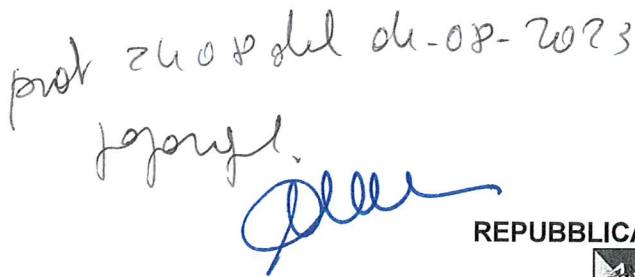 prot 2408 del 04-08-2023
REPUBBLICA